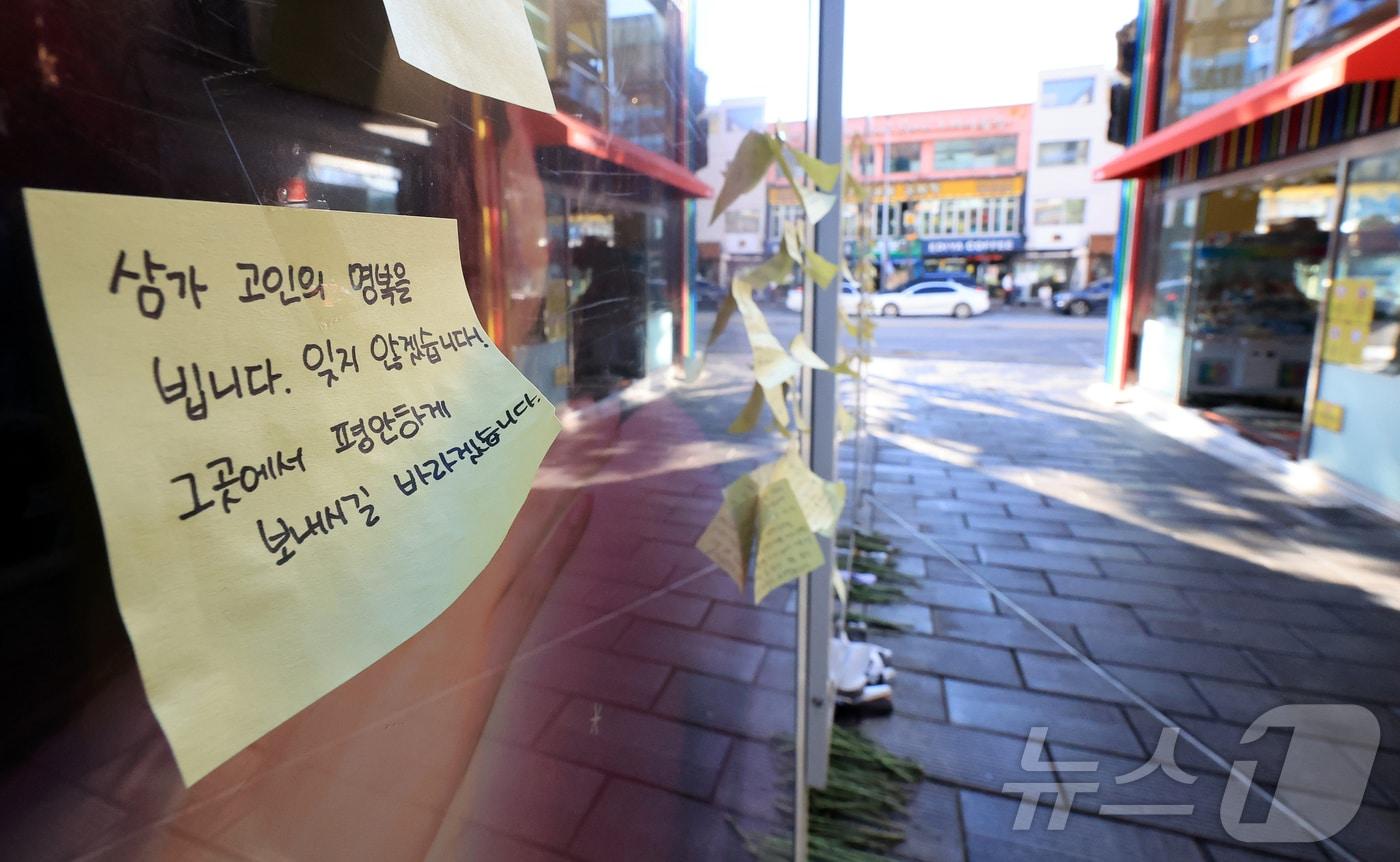 상가 고인의 명복을
빕니다. 잊지 않겠습니다!
그곳에서 평안하게
보내시길 바라겠습니다.
EDIYA COFFEE
뉴스1